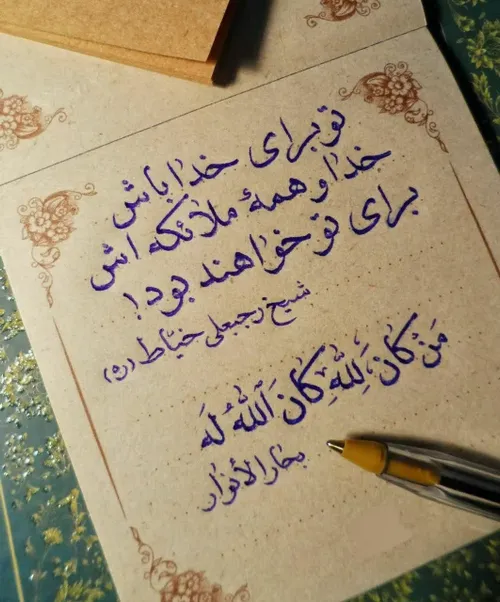 تو برای خدا باش
خدا و همهٔ ملائکه اش
برای تو خواهند بود!
شیخ رجبعلی خیّاط (ره)
مَنْ کٰانَ لِلّٰهِ کٰانَ اَللّٰهُ لَهُ
بحارالأنوار